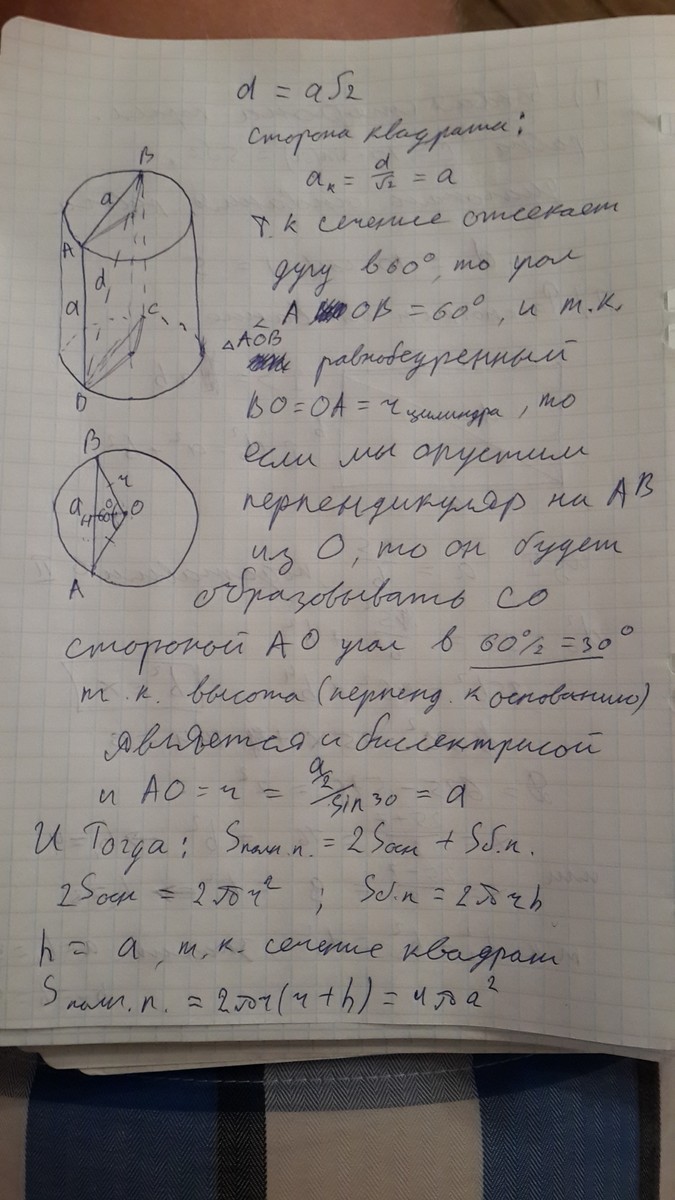 d = a√2
сторона квадрата:
aк = d/√2 = a
т.к сечение отсекает
дугу в 60°, то угол
∠ A OB = 60°, и т.к.
△AOB
равнобедренный
BO = OA = r цилиндра, то
если мы опустим
перпендикуляр на AB
из O, то он будет
образовывать со
стороной AO угол в 60°/2 = 30°
т.к. высота (перпенд. к основанию)
является и биссектрисой
и AO = r = a/2/sin 30 = a
И Тогда: Sполн.п. = 2Sосн + Sб.п.
2Sосн = 2πr² ; Sб.п = 2πrh
h = a, т.к. сечение квадрат
Sполн.п. = 2πr(r+h) = 4πa²
B
a
A
d
a
C
D
B
r
a
H
60°
O
A